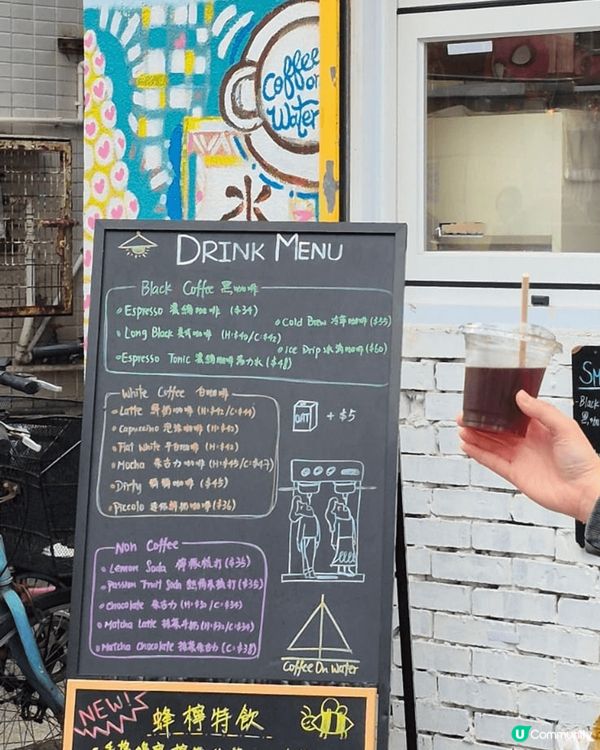 Coffee on Water
DRINK MENU
Black Coffee 黑咖啡
Espresso 濃縮咖啡 ($34)
Cold Brew 冷萃咖啡 ($55)
Long Black 美式咖啡 (H:$40/C:$42)
Ice Drip 冰滴咖啡 ($60)
Espresso Tonic 濃縮咖啡湯力水 ($48)
White Coffee 白咖啡
Latte 鮮奶咖啡 (H:$42/C:$44)
Cappuccino 泡沫咖啡 (H:$42)
Flat White 平白咖啡 (H:$42)
Mocha 朱古力咖啡 (H:$45/C:$47)
Dirty 髒髒咖啡 ($45)
Piccolo 迷你鮮奶咖啡 ($36)
OAT + $5
Non Coffee
Lemon Soda 檸檬梳打 ($35)
Passion Fruit Soda 熱情果梳打 ($35)
Chocolate 朱古力
Matcha Latte 抹茶牛奶
Matcha Chocolate 抹茶朱古力 (C:$38)
Coffee On Water
NEW!
蜂檸特飲
SM
Black
U Community